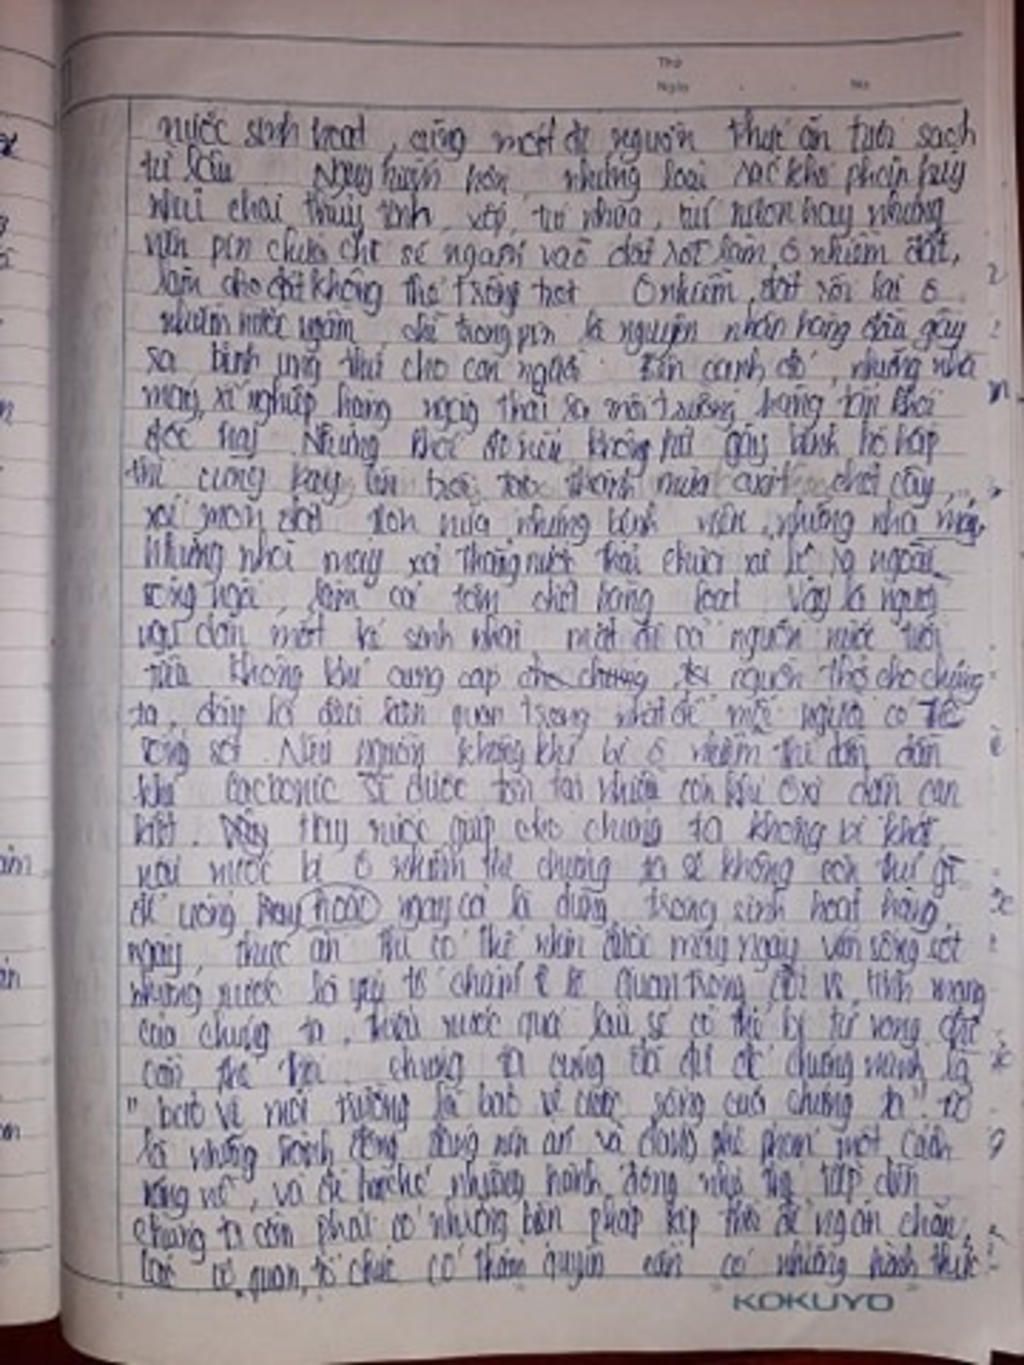 Thứ
Ngày . . No
nước sinh hoạt, cũng mất đi nguồn thức ăn tươi sạch
từ lâu Nguy hiểm hơn, những loại rác khó phân hủy
như chai thủy tinh, túi nilon hay những
pin chứa chì sẽ ngấm vào đất rồi làm ô nhiễm đất,
làm cho đất không thể trồng trọt Ô nhiễm đất rồi lại ô
nhiễm nước ngầm, chì trong pin là nguyên nhân hàng đầu gây
ra bệnh ung thư cho con người. Bên cạnh đó, những nhà
máy, xí nghiệp hàng ngày thải ra môi trường hàng tấn khói
độc hại. Những khói đó nếu không gây bệnh hô hấp
thì cũng bay lên trời tạo thành mưa axit chết cây,
xói mòn đất Hơn nữa những bệnh viện, những nhà máy,
những nhà máy xả thẳng nước thải chưa xử lí ra ngoài
sông ngòi, làm cá tôm chết hàng loạt Vậy là người
ngư dân mất kế sinh nhai mất đi cả nguồn nước tưới
tiêu Không khí cung cấp cho chúng nguồn thở cho chúng
ta, đây là điều quan trọng nhất để mỗi người có thể
sống sót. Nếu nguồn không khí bị ô nhiễm thì dần dần
khí cacbonic sẽ được tồn tại nhiều còn khí oxi dần cạn
kiệt. nước giúp cho chúng ta không bị khát,
nước bị ô nhiễm thì chúng ta sẽ không còn thứ gì
để uống hay hoặc ngay cả là dùng trong sinh hoạt hàng
ngày, thức ăn thì có thể nhịn được mấy ngày vẫn sống sót
nhưng nước là yếu tố quan trọng đối với tính mạng
của chúng ta. Thiếu nước quá lâu sẽ có thể bị tử vong
chúng ta cũng đã đủ để chứng minh là
" bảo vệ môi trường là bảo vệ cuộc sống của chúng ta". Đó
là những hành động đáng lên án và đáng phê phán một cách
nặng nề, và để hạn chế những hành động như thế tiếp diễn
chúng ta cần phải có những biện pháp kịp thời để ngăn chặn.
Các cơ quan, tổ chức có thẩm quyền cần có những hình thức
KOKUYO